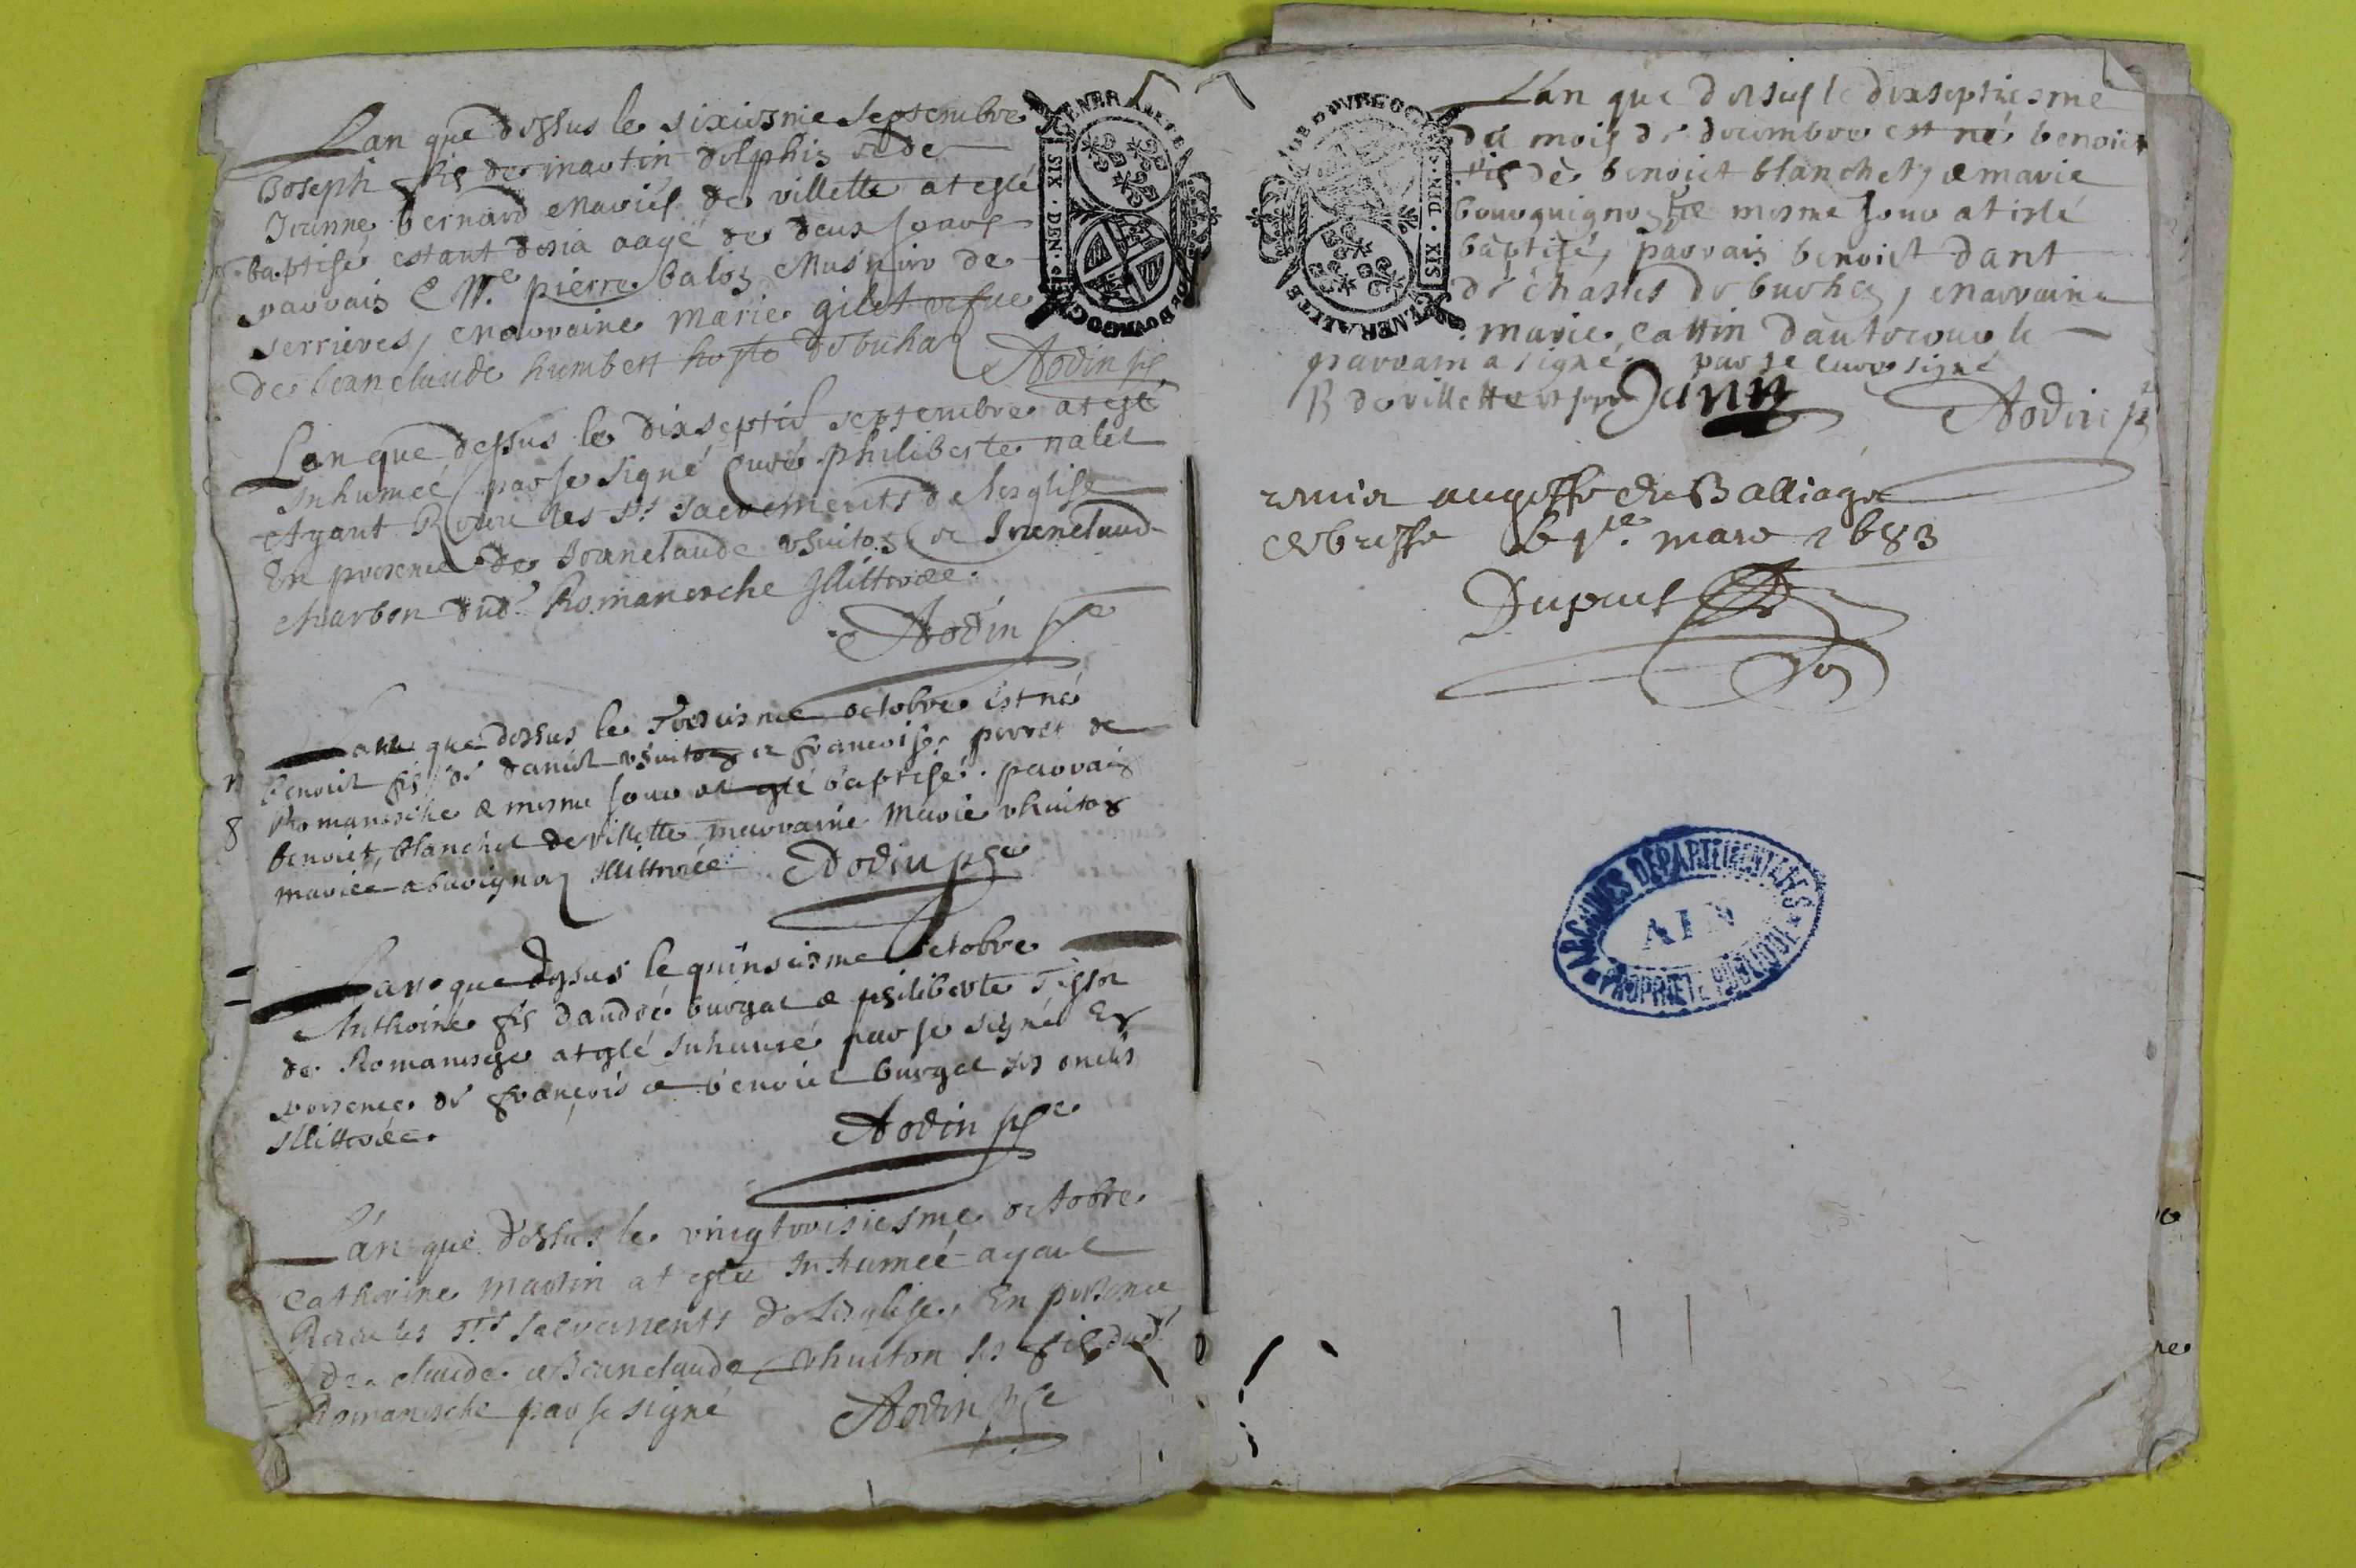 Lan que dessus le sixiesme septembre
Joseph fils de martin delphis & de
Jeanne bernard mariés de villette at esté
baptisé estant desia aagé de deux jours
parrain Mre pierre balos de
serrieres, & marraine marie gilet vefue
de Jeanclaude humbert hoste de buha
Aodin pbre
Lan que dessus le dixseptie septembre at esté
Inhumeé par je signé Curé philiberte nalet
Ayant Receu les sts sacrements de lesglise
En presence de Jeanclaude vhuiton & Jeanclaude
charbon dud Romanesche Illittrées.
Aodin pbre
Lan que dessus le octobre est né
benoict fis de daniel vhuiton & francoise perret de
Romanesche & mesme jour at esté baptisé. parrain
benoict blanchet de villette marraine Marie vhuiton
mariée a buvignon Illittrée Aodin pbre
Lan que dessus le quinsiesme octobre
Anthoine fis dandré burgat & philiberte
de Romanesche at esté Inhumé par je signé En
presence de françois & benoict burgat ses oncles
Illittrées.
Aodin pbre
Lan que dessus le vingtroisiesme octobre
Catherine martin at esté Inhumeé ayant
Receu les sts sacrements de Lesglise, En presence
de claude & Jeanclaude vhuiton ses fils dud
Romanesche par je signé Aodin pbre
GENERALITE DE BOURGOGNE
SIX · DEN ·
GENERALITE DE BOURGOGNE
SIX · DEN ·
Lan que dessus le dixseptiesme
du mois de decembre est né benoict
fils de benoict blanchet, & marie
bourguignon & mesme jour at esté
baptisé, parrain benoict dant
de chasles de buhas, & marraine
marie cattin dautrecour le
parrain a signé. par je curé signé
B de villette Dant
Aodin pbre
remis au greffe du Balliage
de bresse le 1re mars 1683
Dupuis
ARCHIVES DÉPARTEMENTALES
AIN
PROPRIÉTÉ PUBLIQUE